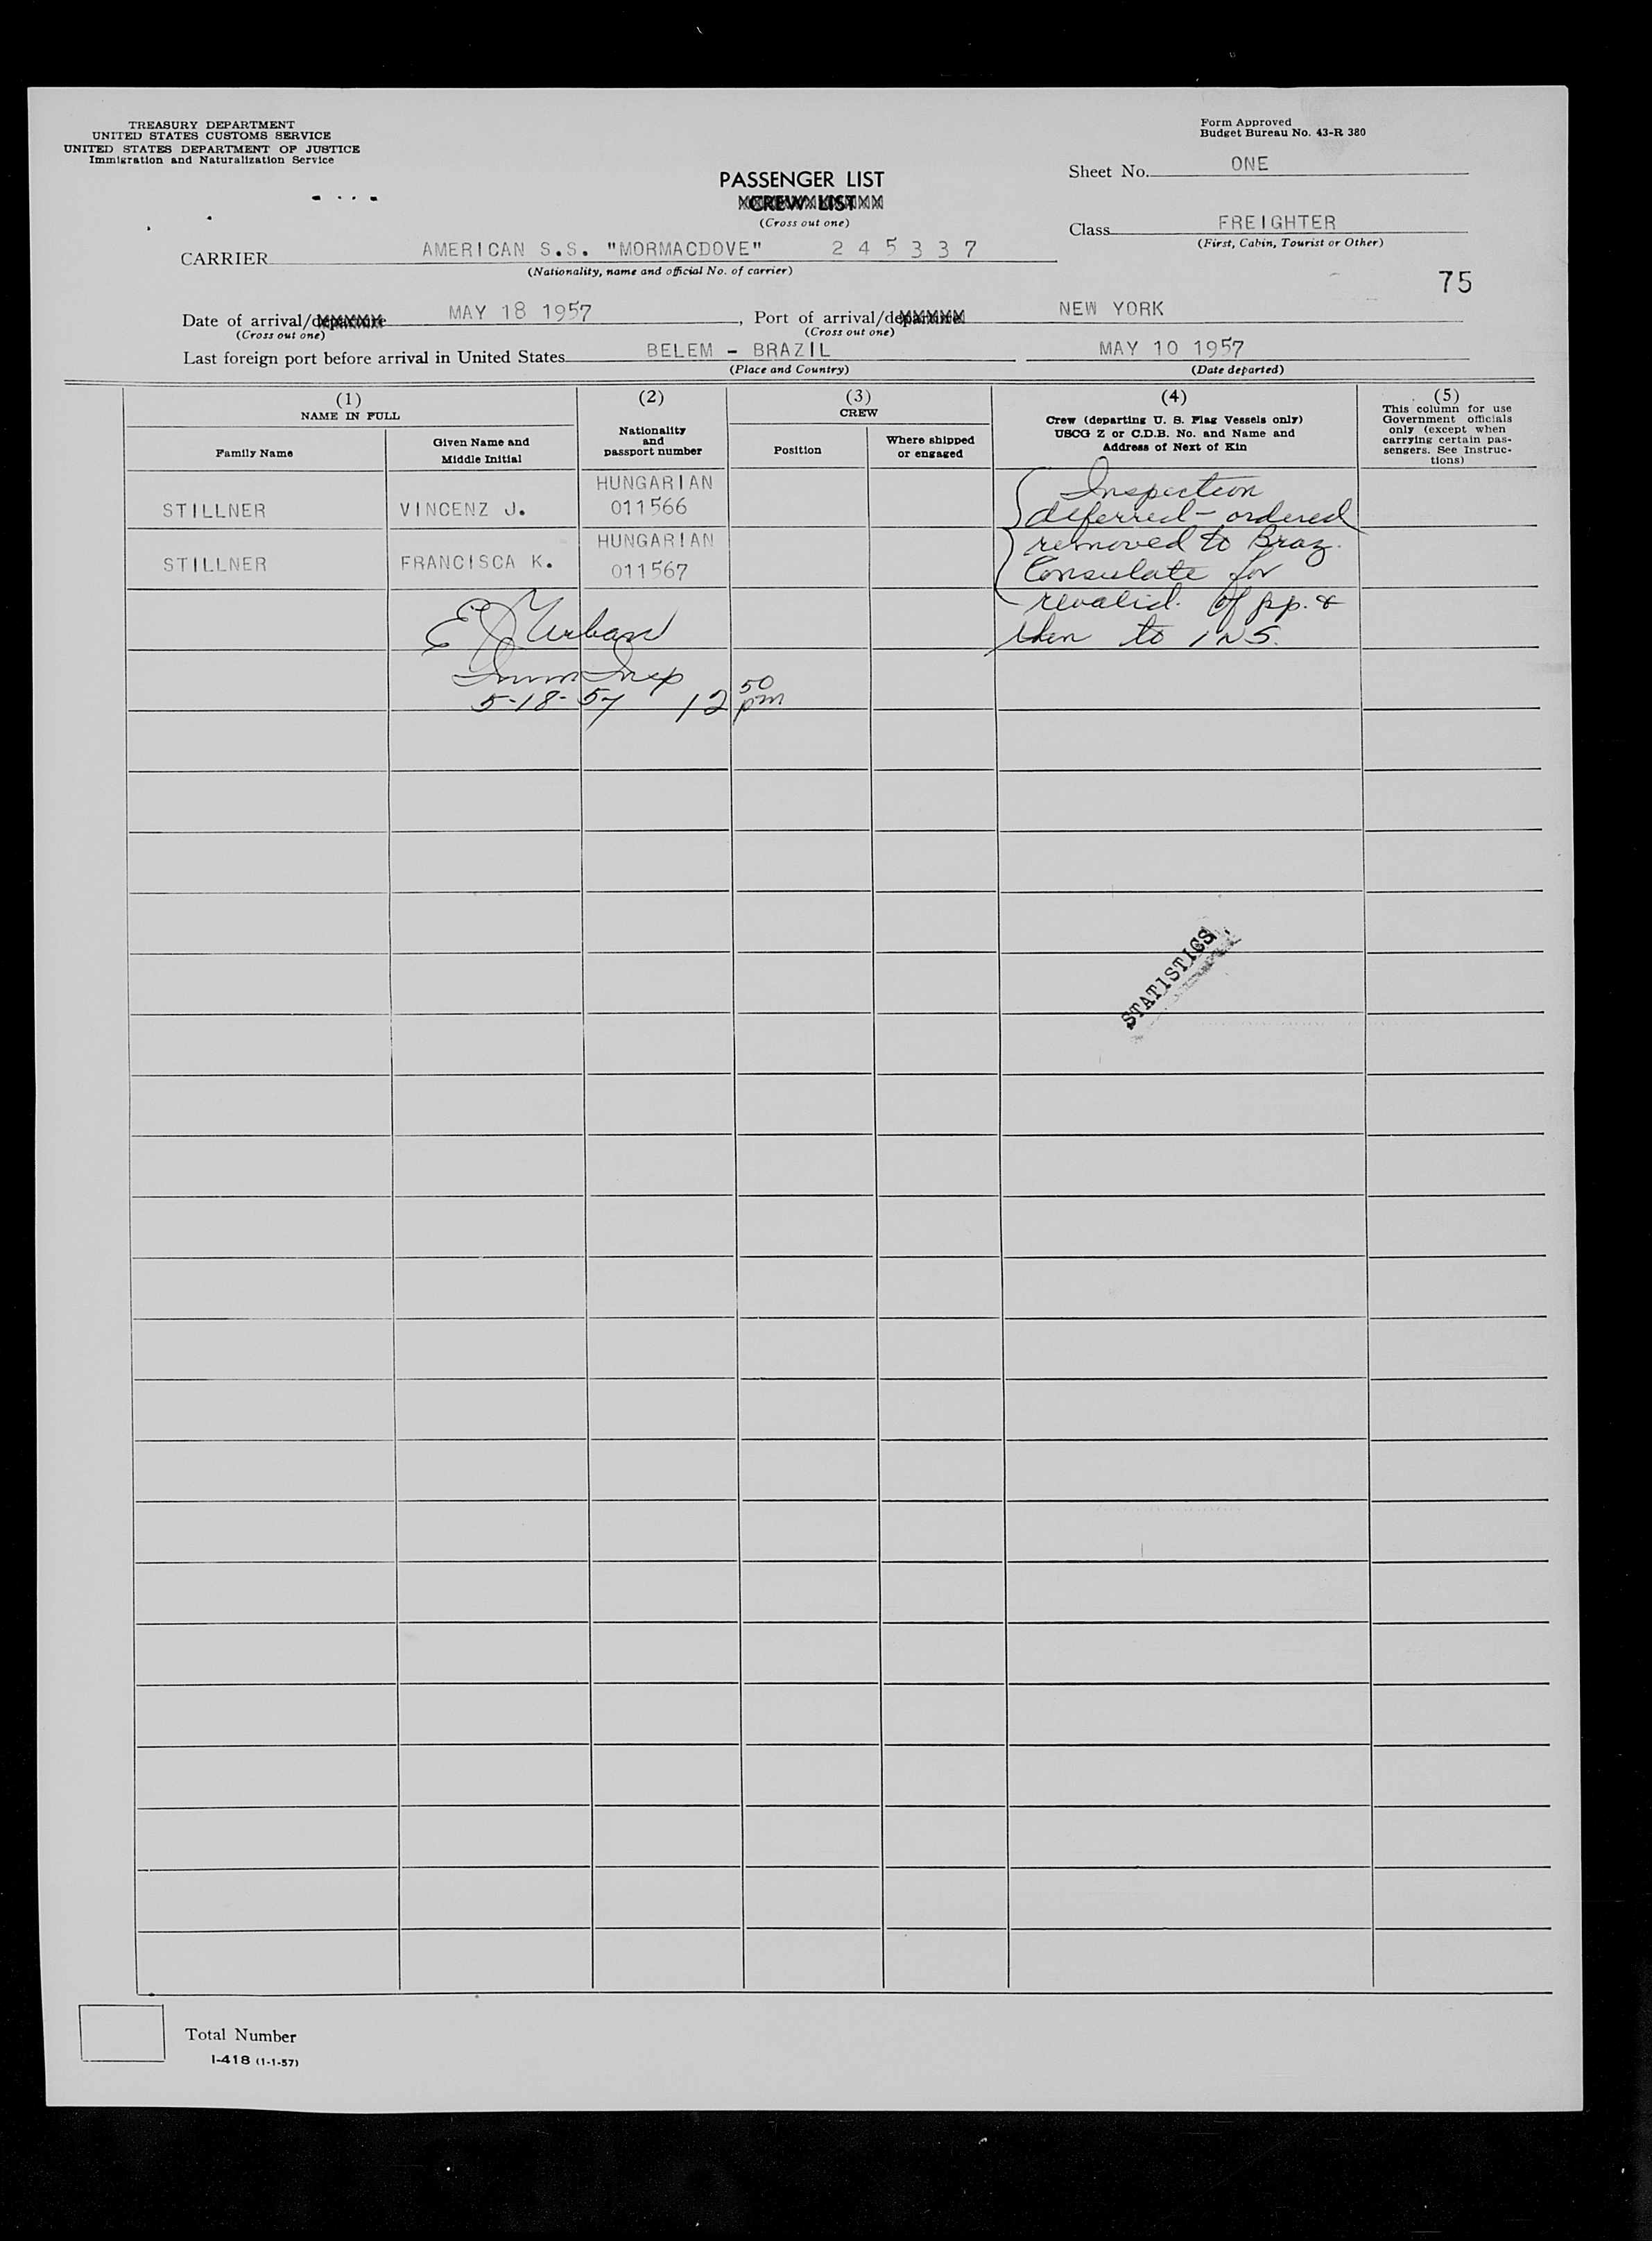 TREASURY DEPARTMENT
UNITED STATES CUSTOMS SERVICE
UNITED STATES DEPARTMENT OF JUSTICE
Immigration and Naturalization Service
Form Approved
Budget Bureau No. 43-R 380
Sheet No. ONE
PASSENGER LIST
CREW LIST
(Cross out one)
Class FREIGHTER
(First, Cabin, Tourist or Other)
CARRIER AMERICAN S.S. "MORMACDOVE" 2 4 5 3 3 7
(Nationality, name and official No. of carrier)
75
Date of arrival/departure MAY 18 1957, Port of arrival/departure NEW YORK
(Cross out one) (Cross out one)
Last foreign port before arrival in United States BELEM - BRAZIL MAY 10 1957
(Place and Country) (Date departed)
(1) (2) (3) (4) (5)
NAME IN FULL
Family Name
Given Name and
Middle Initial
Nationality
and
passport number
CREW
Position
Where shipped
or engaged
Crew (departing U. S. Flag Vessels only)
USCG Z or C.D.B. No. and Name and
Address of Next of Kin
This column for use
Government officials
only (except when
carrying certain pas-
sengers. See Instruc-
tions)
HUNGARIAN
STILLNER VINCENZ J. 011566
HUNGARIAN
STILLNER FRANCISCA K. 011567
Inspection
deferred - ordered
removed to Braz.
Consulate for
revalid. of pp. &
then to INS.
E J Urban
Imm Insp
5-18-57 12 50 pm
STATISTICS
Total Number
I-418 (1-1-57)